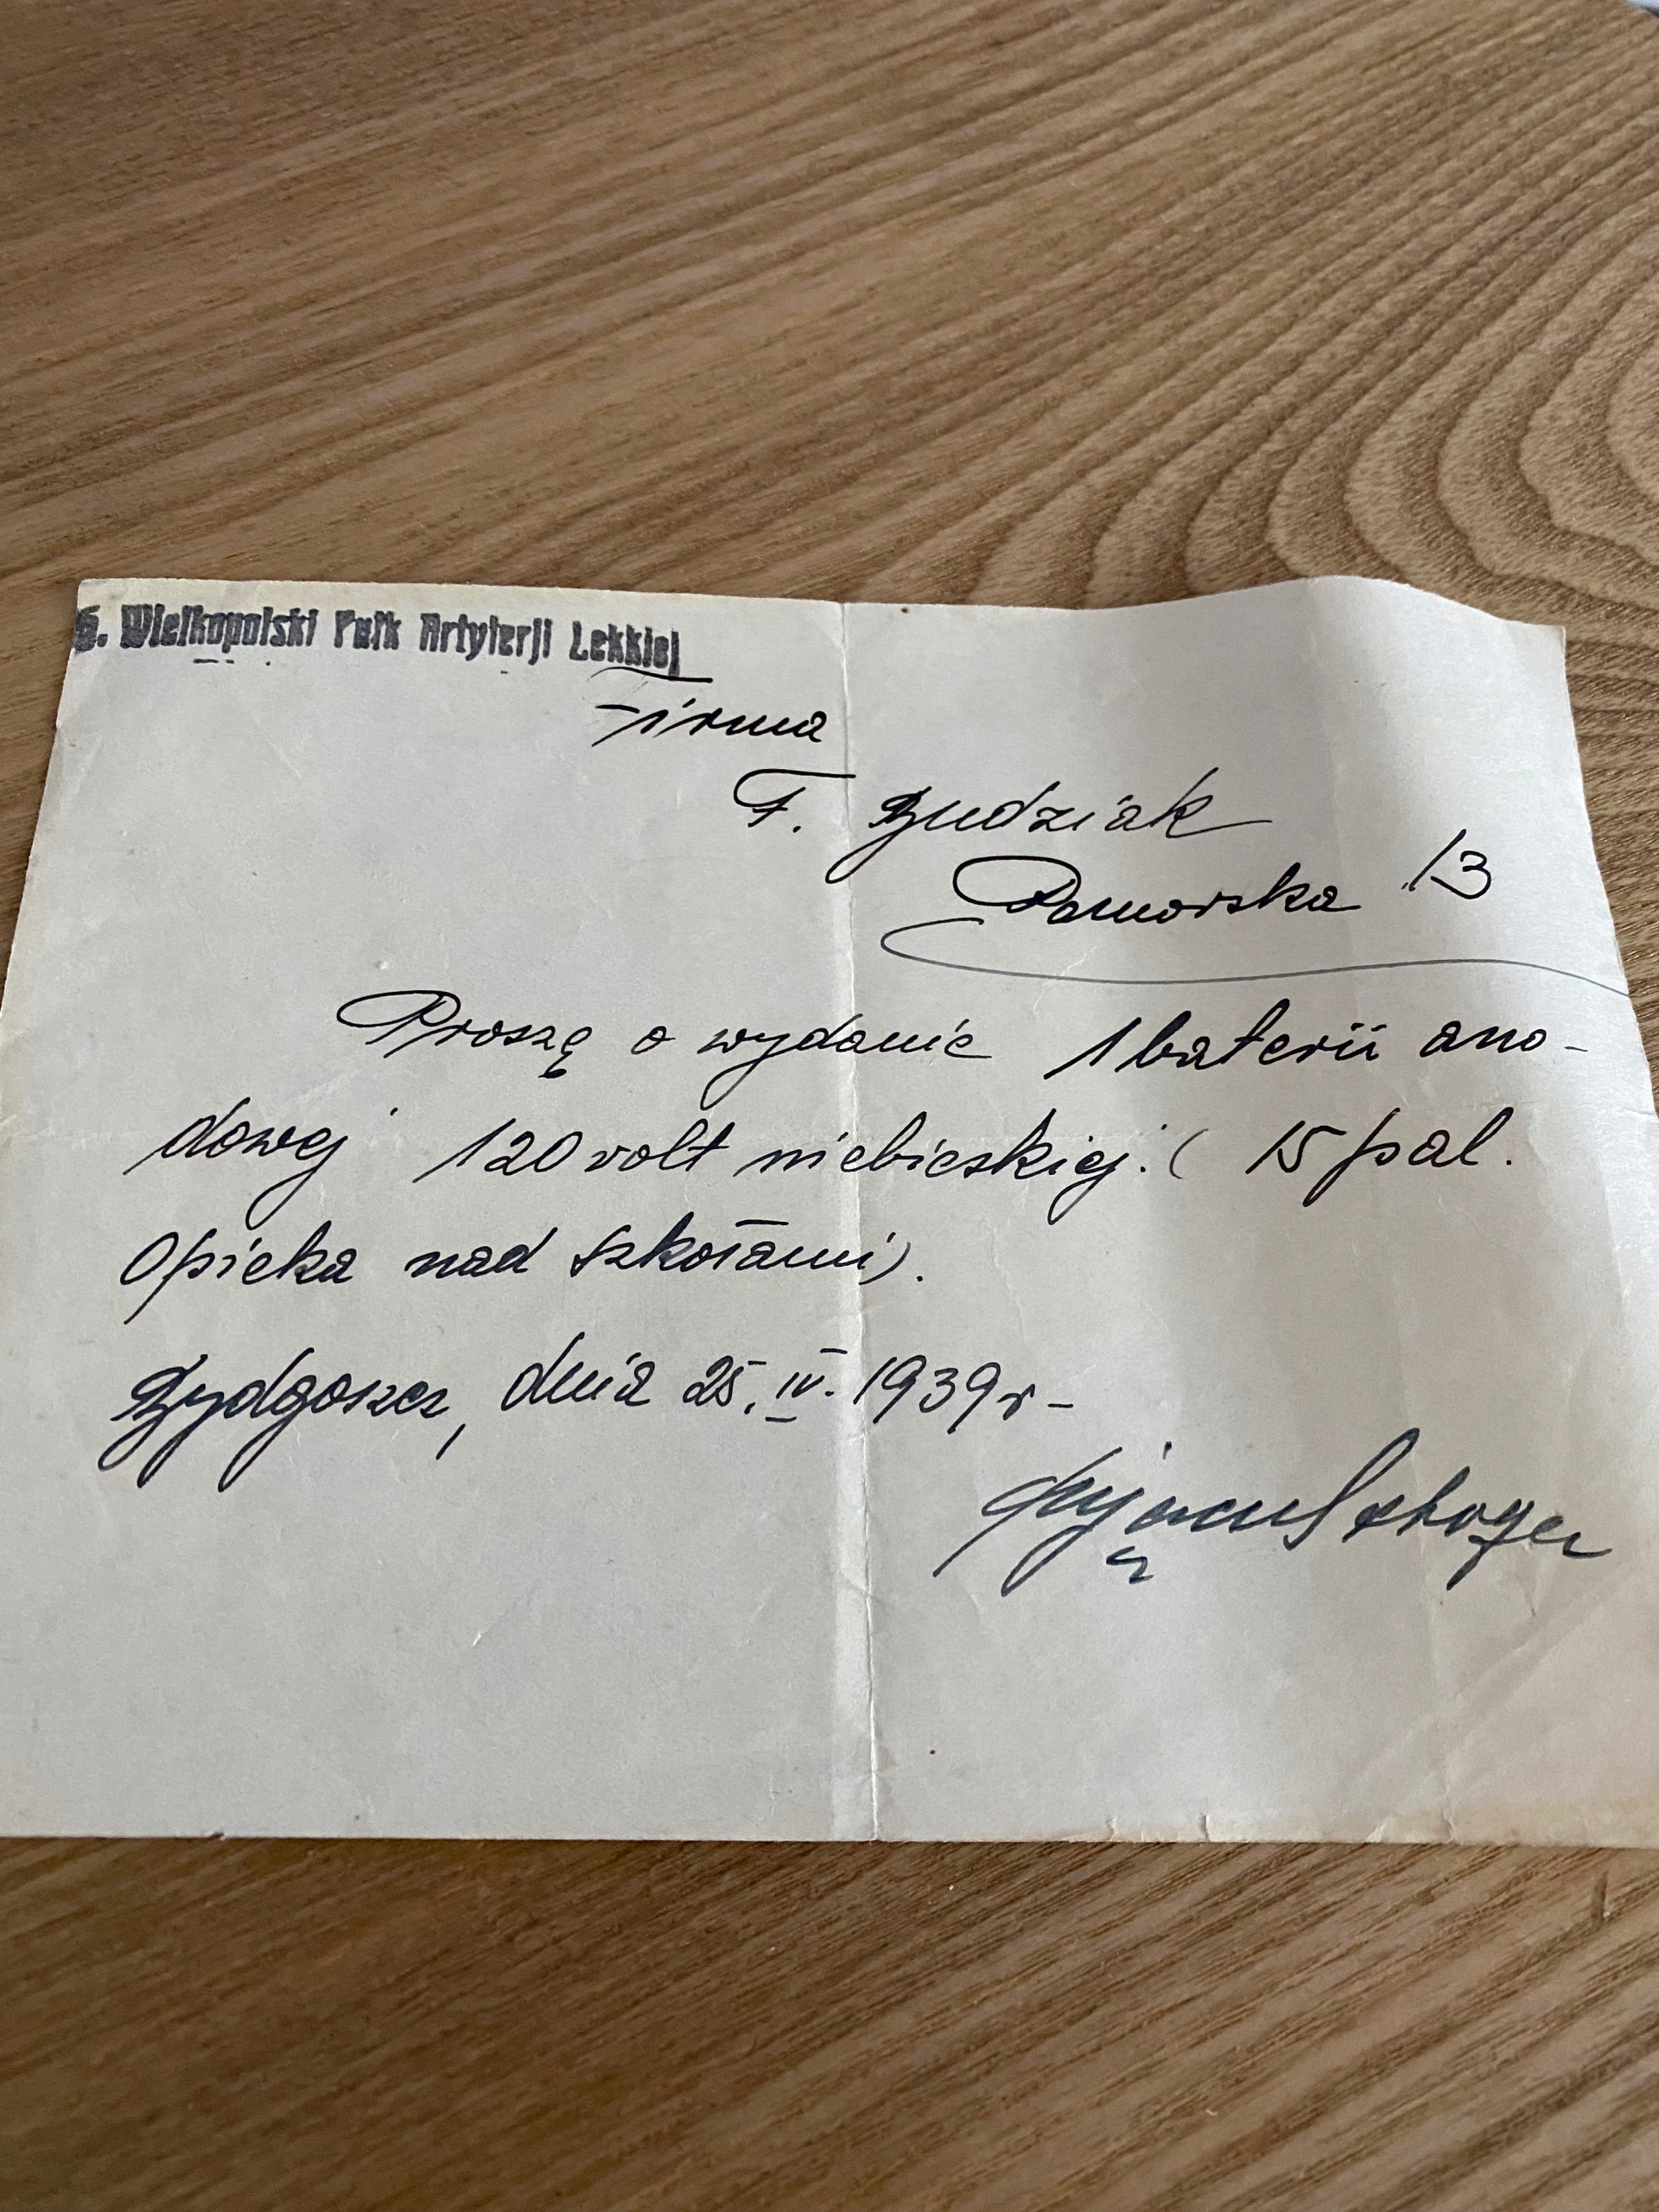 5. Wielkopolski Pułk Artylerji Lekkiej
Firma
F. Budziak
Pomorska 13
Proszę o wydanie 1 baterii ano-
dowej 120 volt niebieskiej. ( 15 pal.
Opieka nad szkołami).
Bydgoszcz, dnia 25. IV. 1939 r -